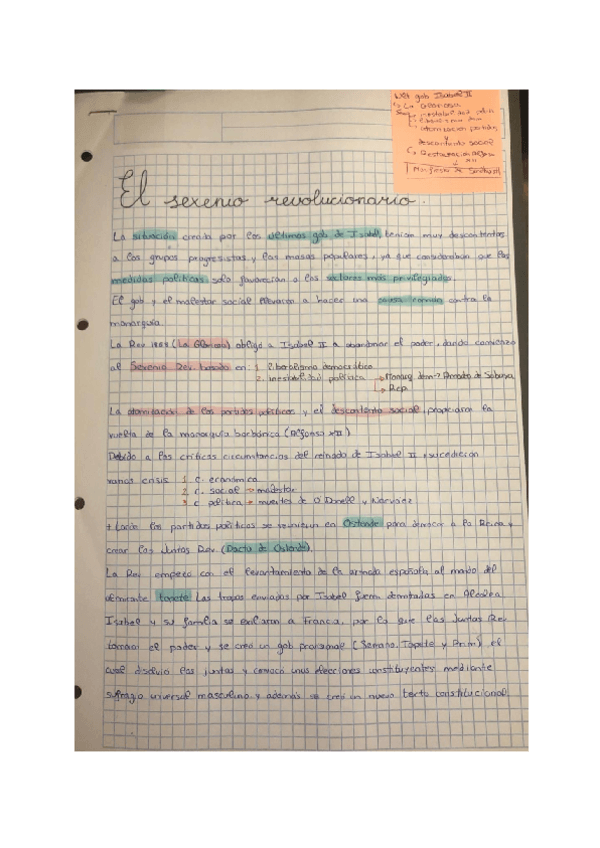 Ult gob Isabel II
La Gloriosa
inestabilidad polit
atomización partidos
y
descontento social
Restauración Alfonso
XII
Manifiesto de Sandhurst
El sexenio revolucionario.
La situación creada por los últimos gob de Isabel, tenían muy descontentos
a los grupos progresistas y las masas populares, ya que consideraban que las
medidas políticas solo favorecían a los sectores más privilegiados.
El gob y el malestar social llevaron a hacer una causa común contra la
monarquía.
La Rev 1868 (La Gloriosa) obligó a Isabel II a abandonar el poder, dando comienzo
al Sexenio Rev. basado en: 1. liberalismo democrático
2. inestabilidad política → Monarq. dem → Amadeo de Saboya
→ Rep.
La atomización de los partidos políticos y el descontento social, propiciaron la
vuelta de la monarquía borbónica (Alfonso XII)
Debido a las críticas circunstancias del reinado de Isabel II, sucedieron
varias crisis 1 c. económica
2 c. social → malestar
3 c. política → muertes de O'Donell y Narvaez
+ tarde los partidos políticos se reunieron en Ostende para derrocar a la Reina y
crear las Juntas Rev. (Pacto de Ostende).
La Rev empezó con el levantamiento de la armada española al mando del
almirante Topete. Las tropas enviadas por Isabel fueron derrotadas en Alcolea
Isabel y su familia se exiliaron a Francia, por lo que las Juntas Rev
tomaron el poder y se creó un gob provisional (Serrano, Topete y Prim) el
cual disolvió las juntas y convocó unas elecciones constituyentes mediante
sufragio universal masculino y además se creó un nuevo texto constitucional.